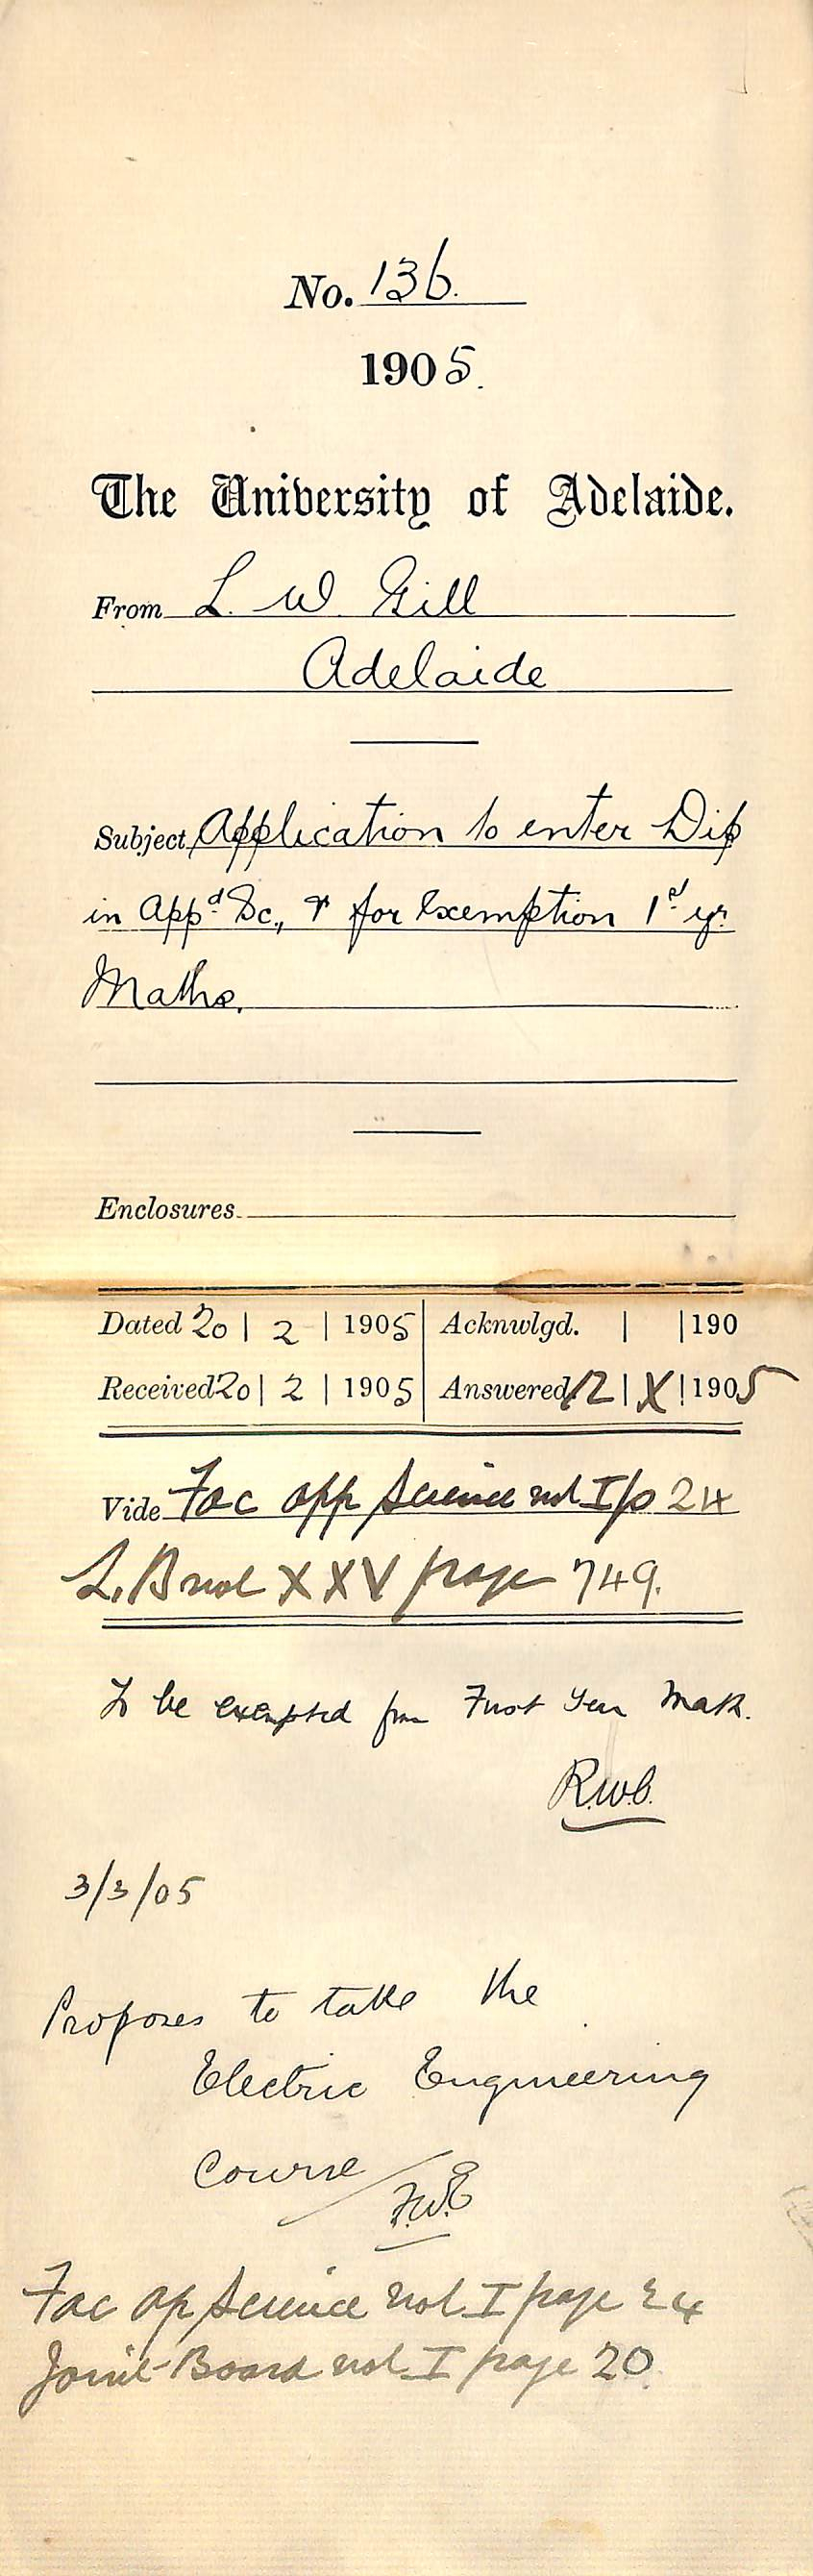 No. 136.
1905.
The University of Adelaide.
From L. W. Gill
Adelaide
Subject Application to enter Dip
in Appd Sc., & for Exemption 1st yr.
Maths.
Enclosures
Dated 20 | 2 | 1905 | Acknwlgd. | | 190
Received 20 | 2 | 1905 | Answered 12 | X | 1905
Vide Fac app Science vol I/p 24
L.B vol XXV page 749.
To be exempted from First Year Math.
R.W.C.
3/3/05
Proposes to take the
Electric Engineering
Course
F.W.E
Fac ap Science vol I page 24
Joint Board vol I page 20.